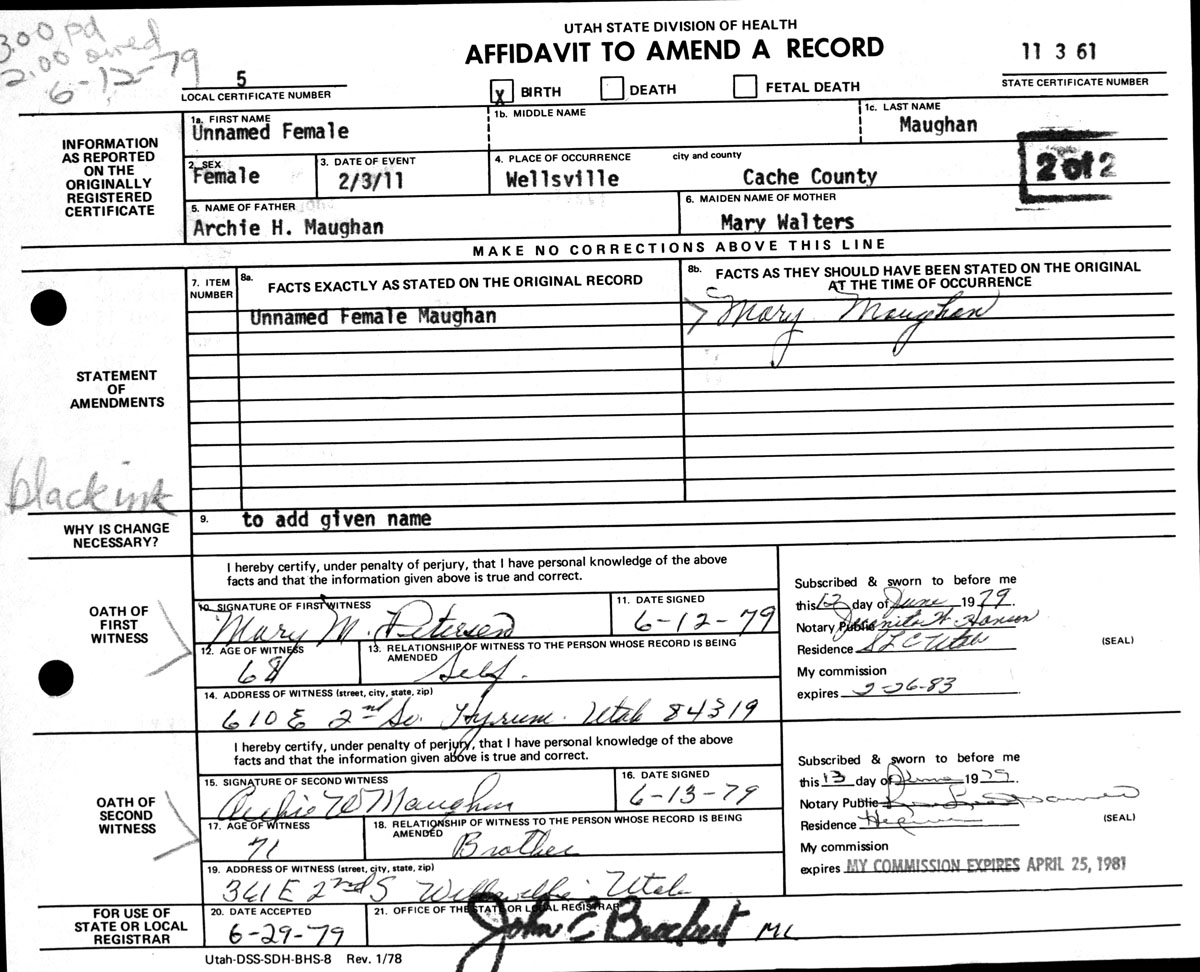 3.00 pd
2.00 owed
6-12-79
UTAH STATE DIVISION OF HEALTH
AFFIDAVIT TO AMEND A RECORD
5
LOCAL CERTIFICATE NUMBER
X BIRTH DEATH FETAL DEATH
11 3 61
STATE CERTIFICATE NUMBER
INFORMATION AS REPORTED ON THE ORIGINALLY REGISTERED CERTIFICATE
1a. FIRST NAME 1b. MIDDLE NAME 1c. LAST NAME
Unnamed Female Maughan
2 of 2
2. SEX 3. DATE OF EVENT 4. PLACE OF OCCURRENCE city and county
Female 2/3/11 Wellsville Cache County
5. NAME OF FATHER 6. MAIDEN NAME OF MOTHER
Archie H. Maughan Mary Walters
MAKE NO CORRECTIONS ABOVE THIS LINE
STATEMENT OF AMENDMENTS
7. ITEM NUMBER 8a. FACTS EXACTLY AS STATED ON THE ORIGINAL RECORD 8b. FACTS AS THEY SHOULD HAVE BEEN STATED ON THE ORIGINAL AT THE TIME OF OCCURRENCE
Unnamed Female Maughan Mary Maughan
black ink
WHY IS CHANGE NECESSARY?
9. to add given name
OATH OF FIRST WITNESS
I hereby certify, under penalty of perjury, that I have personal knowledge of the above
facts and that the information given above is true and correct.
10. SIGNATURE OF FIRST WITNESS 11. DATE SIGNED
Mary M. Petersen 6-12-79
12. AGE OF WITNESS 13. RELATIONSHIP OF WITNESS TO THE PERSON WHOSE RECORD IS BEING AMENDED
68 Self.
14. ADDRESS OF WITNESS (street, city, state, zip)
610 E 2nd So. Hyrum Utah 84319
Subscribed & sworn to before me
this 12 day of June 1979.
Notary Public Juanita H. Hansen
Residence SLC Utah (SEAL)
My commission
expires 2-26-83
OATH OF SECOND WITNESS
I hereby certify, under penalty of perjury, that I have personal knowledge of the above
facts and that the information given above is true and correct.
15. SIGNATURE OF SECOND WITNESS 16. DATE SIGNED
Archie W Maughan 6-13-79
17. AGE OF WITNESS 18. RELATIONSHIP OF WITNESS TO THE PERSON WHOSE RECORD IS BEING AMENDED
71 Brother
19. ADDRESS OF WITNESS (street, city, state, zip)
361 E 2nd S Wellsville Utah
Subscribed & sworn to before me
this 13 day of June 1979.
Notary Public
Residence (SEAL)
My commission
expires MY COMMISSION EXPIRES APRIL 25, 1981
FOR USE OF STATE OR LOCAL REGISTRAR
20. DATE ACCEPTED 21. OFFICE OF THE STATE OR LOCAL REGISTRAR
6-29-79 John E Brockert MC
Utah-DSS-SDH-BHS-8 Rev. 1/78